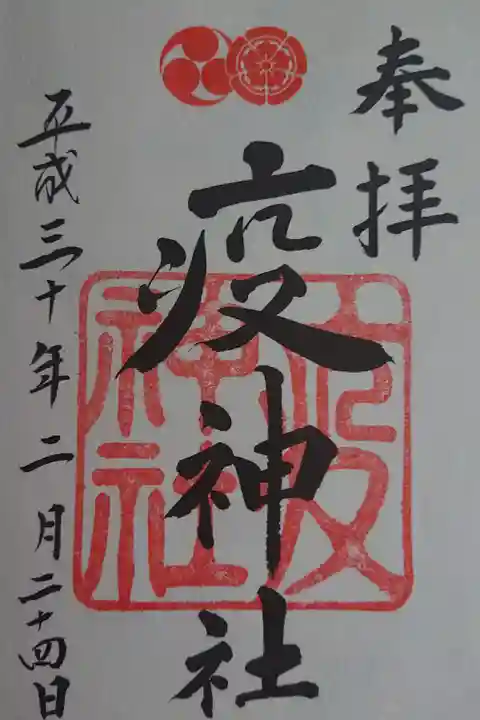 奉拝
疫神社
疫神社
平成三十年二月二十四日